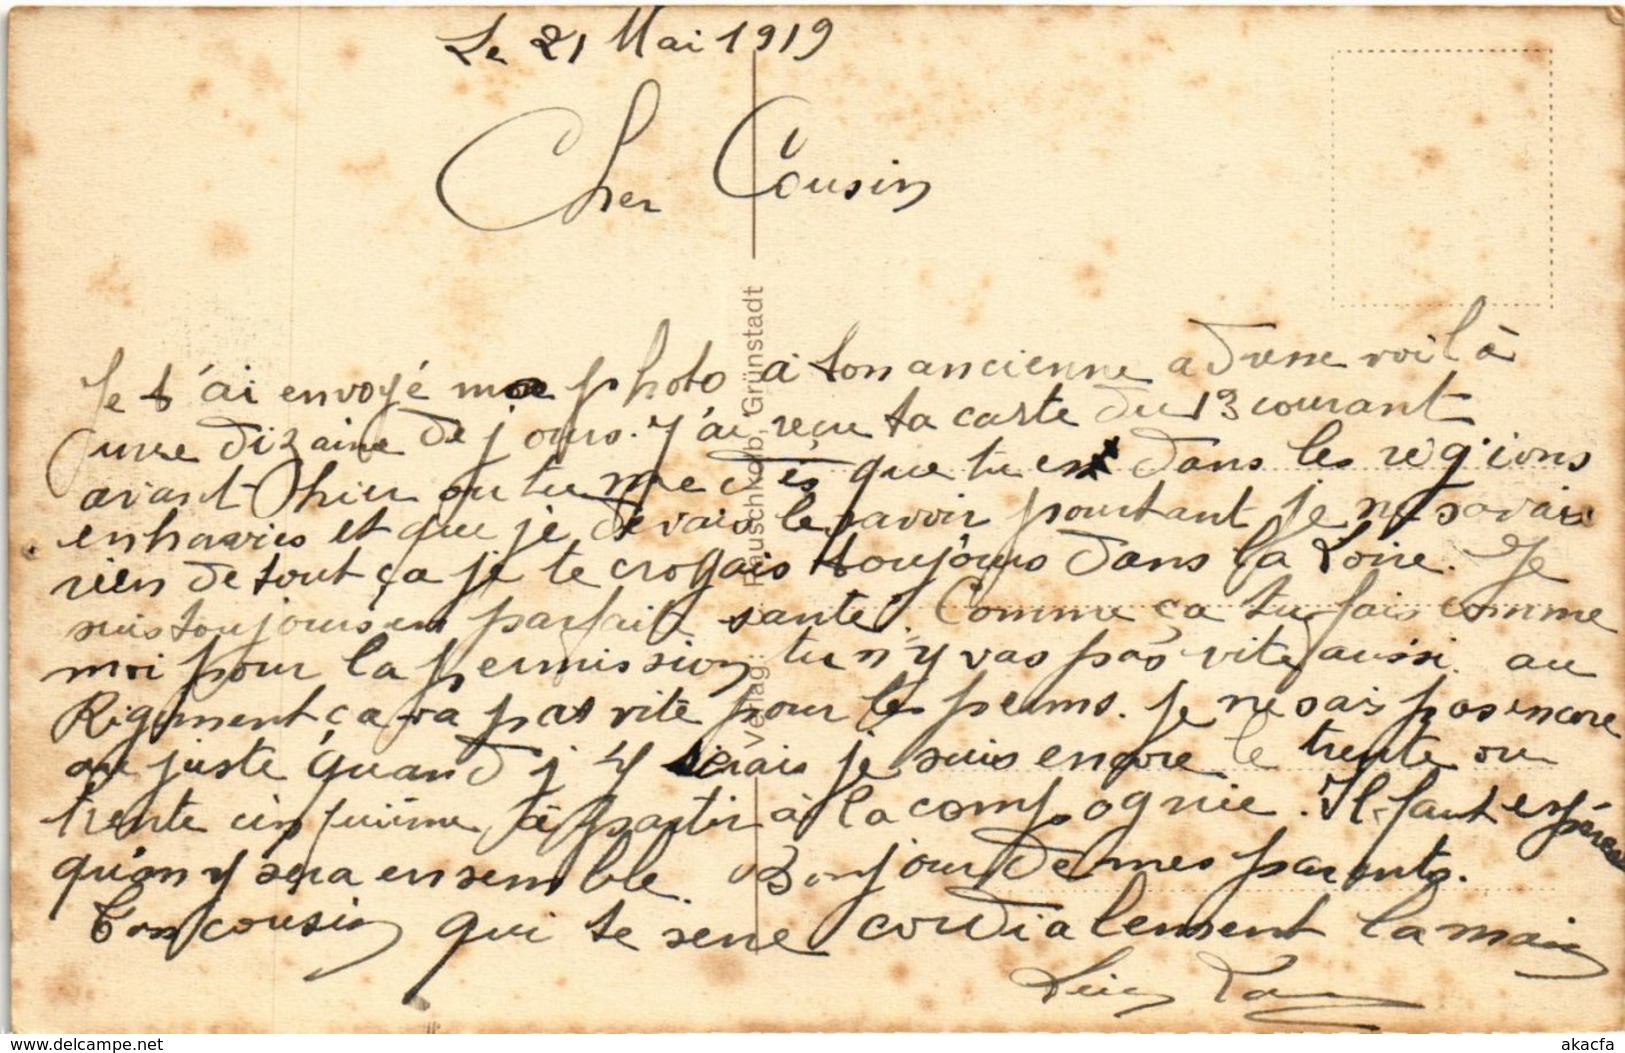 Le 21 Mai 1919
Cher Cousin
Je t'ai envoyé ma photo à ton ancienne adresse voilà
une dizaine de jours. J'ai reçu ta carte du 13 courant
avant hier ou tu me dis que tu es dans les régions
envahies et que je devais le savoir pourtant je ne savais
rien de tout ça je te croyais toujours dans la Loire. Je
suis toujours en parfait santé. Comme ça tu fais comme
moi pour la permission tu n'y vas pas vite aussi. au
Régiment ça va pas vite pour les perms. Je ne sais pas encore
au juste quand j'y serais je suis encore le trente ou
trente cinquième à partir à la compagnie. Il faut espérer
qu'on y sera ensemble. Bonjour de mes parents.
Ton cousin qui te serre cordialement la main
Verlag: Rauschkolb, Grünstadt
www.delcampe.net
akacfa